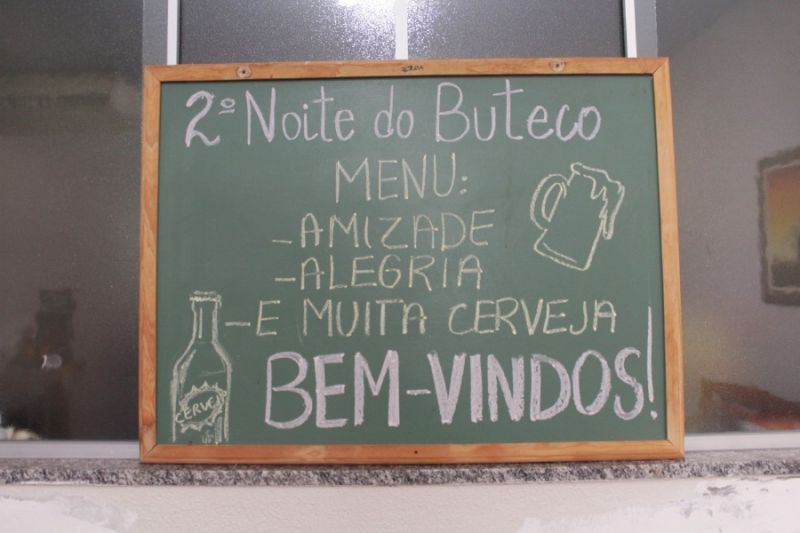 2º Noite do Buteco
MENU:
- AMIZADE
- ALEGRIA
- E MUITA CERVEJA
BEM-VINDOS!